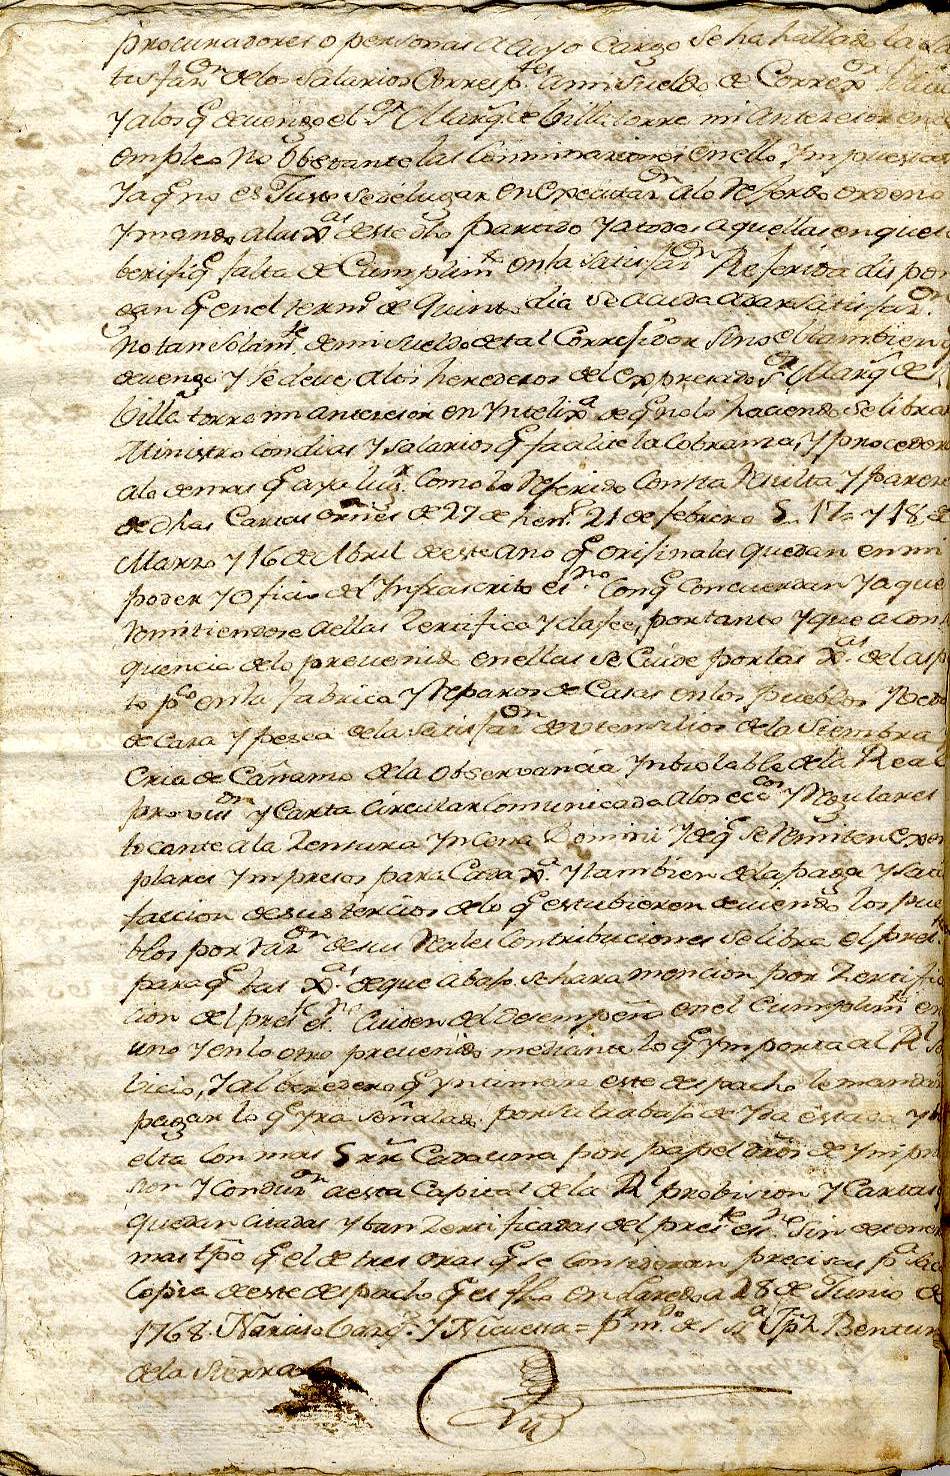 procuradores o personas a cuyo cargo se ha hallado la
tisfaz.on de los salarios corresp.tes a mi sueldo de Correx.or
y a los q.e devengo el S.r Marq.s de Villatorre mi Antecesor en
empleo no obstante las Comminaciones en ello Ympuestas
y a q.e no es Justo se de lugar en execucion a lo referido ordeno
y mando a las X.as de este dho partido y a todas aquellas en que se
berifiq.e falta de Cumplim.to en la satisfaz.on Referida dispon
gan q.e en el term.o de quinto dia se acuda a dar satisfaz.on
no tan solam.te de mi sueldo de tal Correxidor sino el tambien q
devengo y se deve a los herederos del expresado S.or Marq.s de
Villa torre mi antecesor en Yntelix.a de q.e no lo haciendo se librara
Ministro con dias y salarios q.e facilite la Cobranza, y procedere
a lo demas q.e aya lug.r Como lo Referido Consta Resulta y parece
de dhas Cartas ornes de 27 de hen.o 21 de febrero 5 - 17 - y 18 de
Marzo y 16 de Abril de este año q.e orixinales quedan en mi
poder y oficio del Ynfrascrito es.no Con q.e Concuerdan y a que
Remitiendose a ellas Zertifica y da fee, por tanto y que a conse
quencia de lo prevenido en ellas se Cuide por las X.as
to p.co en la fabrica y Reparos de Casas en los pueblos
de caza y pesca de la satisfaz.on de utensilios de la siembra
Cria de Cañamo de la observancia Ynbiolable de la Real
provis.on y Carta Circular Comunicada a los ecc.cos y Regulares
tocante a la Zensura Yn Cena Domini y de q.e se Remiten exem
plares Ympresos para Cada X.on y tambien de la paga y satis
faccion de sus tercios de lo q.e estubieren deviendo los pue
blos por raz.on de sus Reales Contribuciones se libra el pres.te
para q.e las X.as de que abajo se hara mencion por Zertifica
cion del pres.te es.no Cuiden del desempeño en el Cumplim.to en lo
uno y en lo otro prevenido mediante lo q.e ymporta al R.l Ser
bicio, y al beredero q.e yntimare este despacho le mandaran
pagar lo q.e yra señalado por su trabajo de Yda estada y bu
elta con mas 5 rr.s Cada una por papel dros de Ympre
sion y Conduz.on a esta Capital de la R.l probision y Cartas q
quedan citadas y ban Zertificadas del pres.te es.no sin detener
mas tpo q.e el de tres oras q.e se consideran precisas p.a sacar
Copia de este despacho q.e es fho en Laredo a 28 de Junio de
1768. Narciso Barq.n y Nicuesa = p.r m.do de S S.a Jph Bentura
de la Sierra